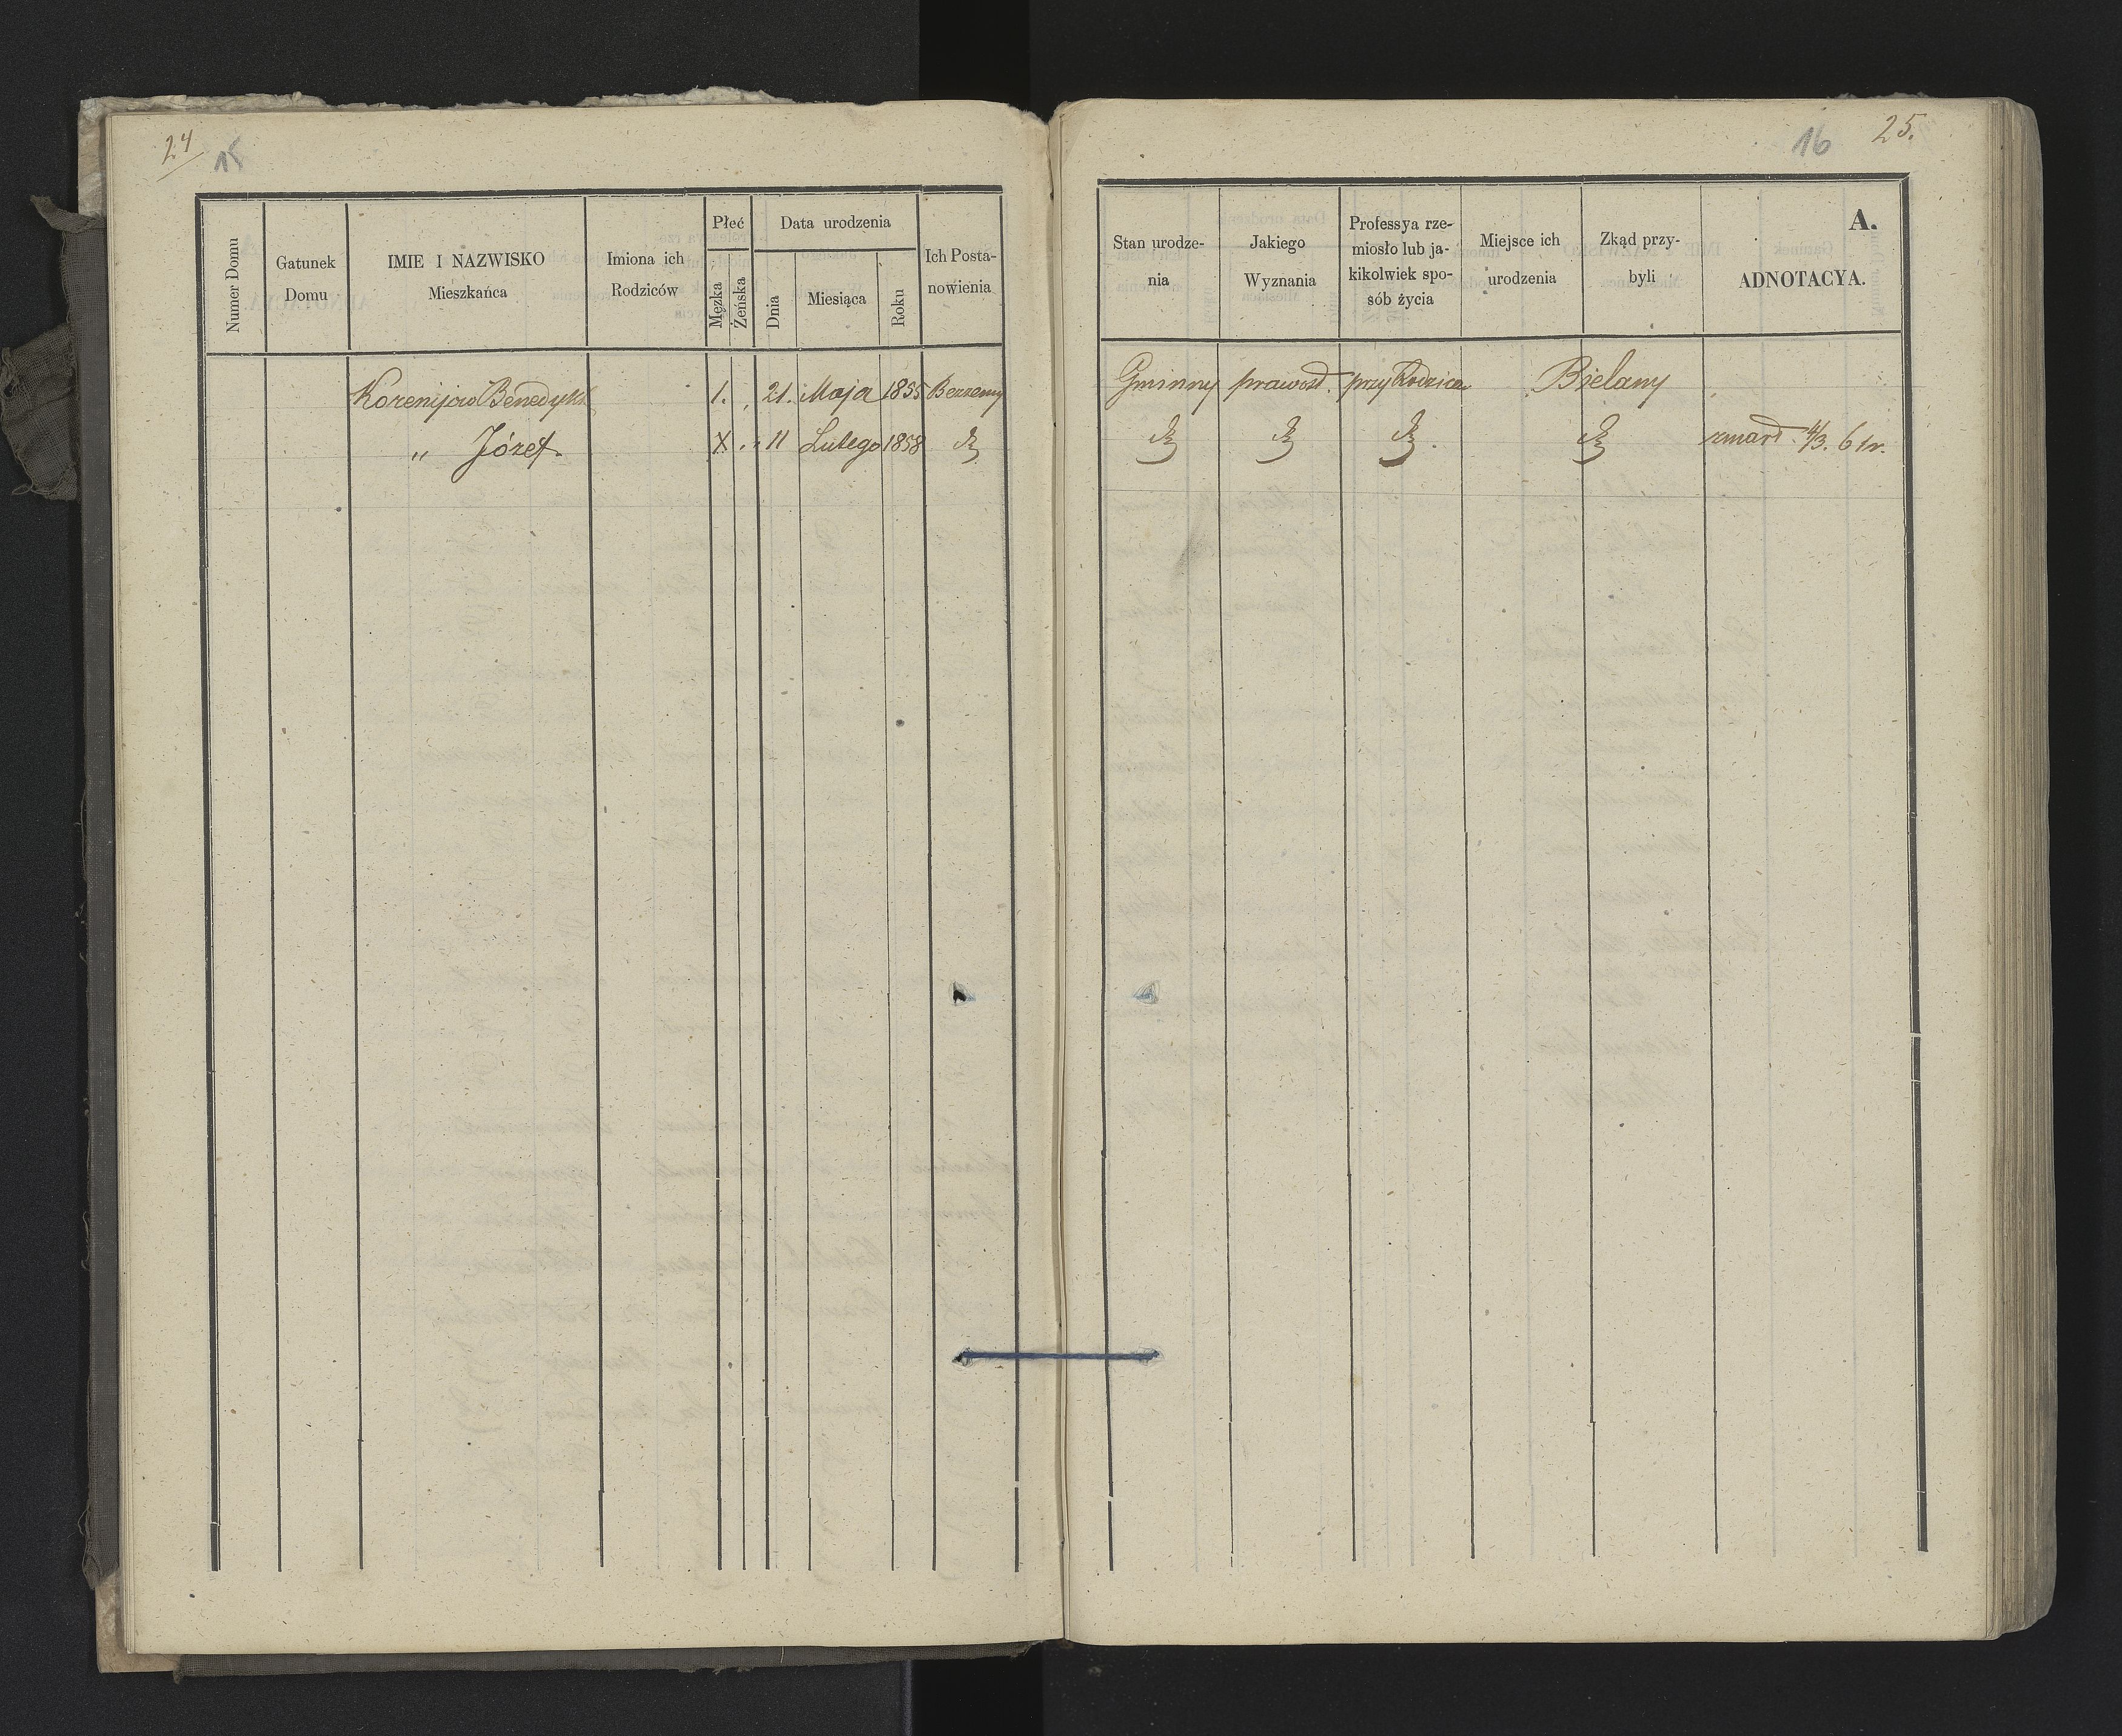 24 15
Numer Domu
Gatunek
Domu
IMIE I NAZWISKO
Mieszkańca
Imiona ich
Rodziców
Płeć
Męzka
Żeńska
Data urodzenia
Dnia
Miesiąca
Roku
Ich Posta-
nowienia
Benedykt 1. 21. Maja 1855 Bezżenny
„ Józef. X „ 11 Lutego 1858 dº
16 25.
A.
Stan urodze-
nia
Jakiego
Wyznania
Professya rze-
miosło lub ja-
kikolwiek spo-
sób życia
Miejsce ich
urodzenia
Zkąd przy-
byli
ADNOTACYA.
Gminny prawosł. przy Rodzicu Bielany
dº dº dº. dº zmarł 4/3. 61 r.